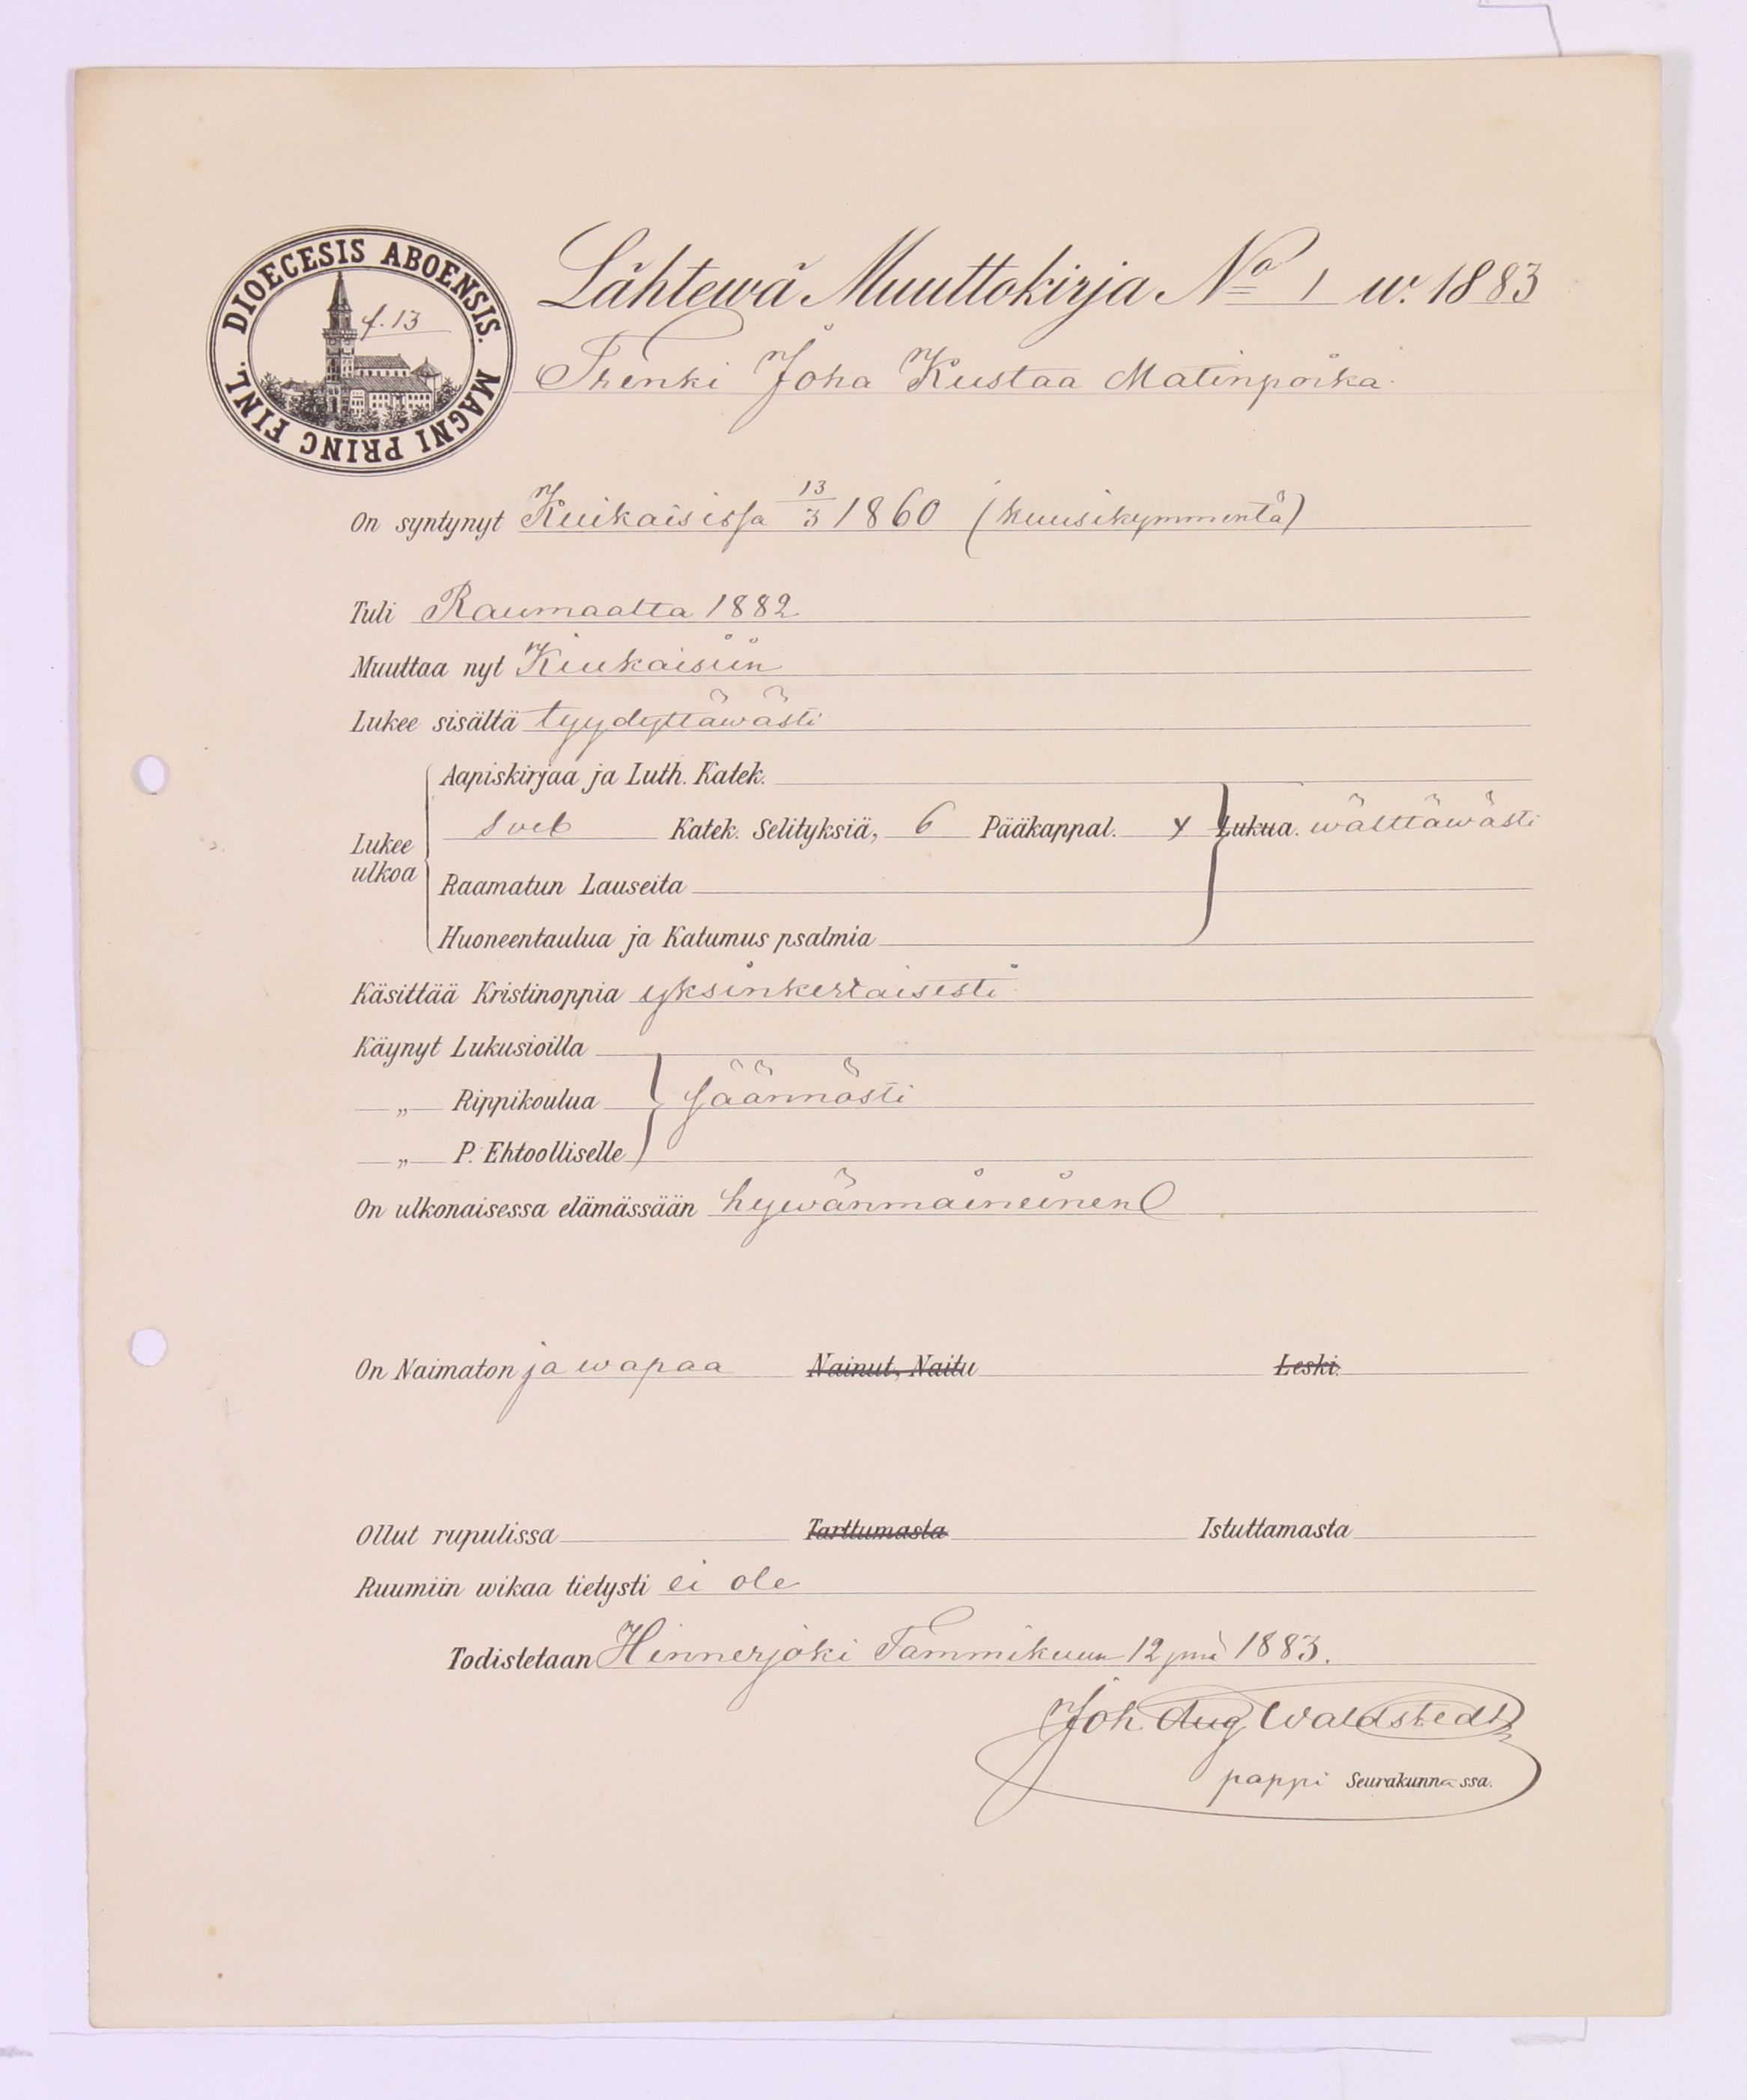 DIOECESIS ABOENSIS. MAGNI PRINC FINL.
f. 13
Lähtewä Muuttokirja No 1 w. 1883
Trenki Joha Kustaa Matinpoika
On syntynyt Kuikaisissa 13/3 1860 (kuusikymmentä)
Tuli Raumaalta 1882
Muuttaa nyt Kiukaisiin
Lukee sisältä tyydyttäwästi
Aapiskirjaa ja Luth. Katek.
Lukee ulkoa
Sveb Katek. Selityksiä, 6 Pääkappal. y Lukua. wälttäwästi
Raamatun Lauseita
Huoneentaulua ja Katumus psalmia
Käsittää Kristinoppia yksinkertaisesti
Käynyt Lukusioilla
„ Rippikoulua säännösti
„ P. Ehtoolliselle
On ulkonaisessa elämässään hywänmaineinen
On Naimaton ja wapaa Nainut, Naitu Leski.
Ollut rupulissa Tarttumasta Istuttamasta
Ruumiin wikaa tietysti ei ole
Todistetaan Hinnerjoki Tammikuun 12 pnä 1883.
Joh. Aug Waldstedt
pappi Seurakunnassa.